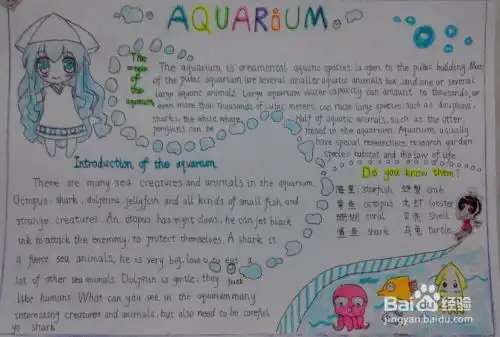 AQUARIUM
The origin of the aquarium
The aquarium is ornamental aquatic species is open to the public building. Most
of the public aquarium are several smaller aquatic animals box, and one or several
large aquatic animals. Large aquarium water capacity can amount to thousands, or
even more than thousands of cubic meters, can raise large species, such as dolphins,
sharks, the white whale
Half of aquatic animals, such as the otter,
penguins can be
raised in the aquarium. Aquarium usually
have special researchers, research garden
species habitat and the law of life
Introduction of the aquarium
There are many sea creatures and animals in the aquarium.
Octopus, shark, dolphins, jellyfish and all kinds of small fish and
strange creatures. An octopus has eight claws, he can jet black
ink to attack the enemmy, to protect themselves. A shark is
a fierce sea animals, he is very big, love to eat a
lot of other sea animals. Dolphin is gentle, they just
like humans. What can you see in the aquarium many
interesting creatures and animals, but also need to be careful
yo shark
Do you know them?
海星 starfish 螃蟹 crab
章鱼 octopus 龙虾 lobster
珊瑚 coral 贝壳 shell
鲨鱼 shark 乌龟 turtle
Baidu 经验
jingyan.baidu.com